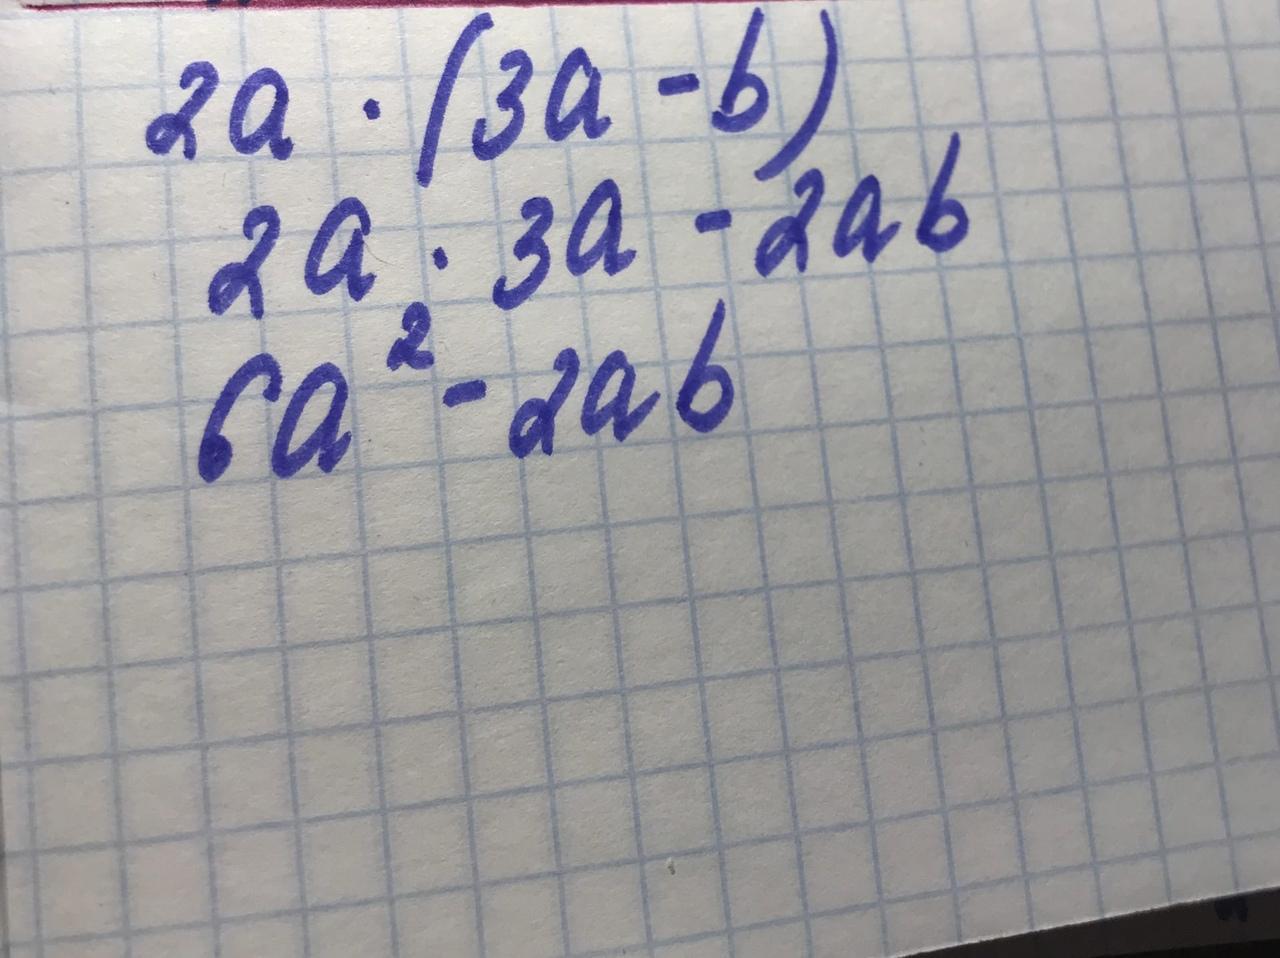 2a · (3a - b)
2a · 3a - 2ab
6a² - 2ab